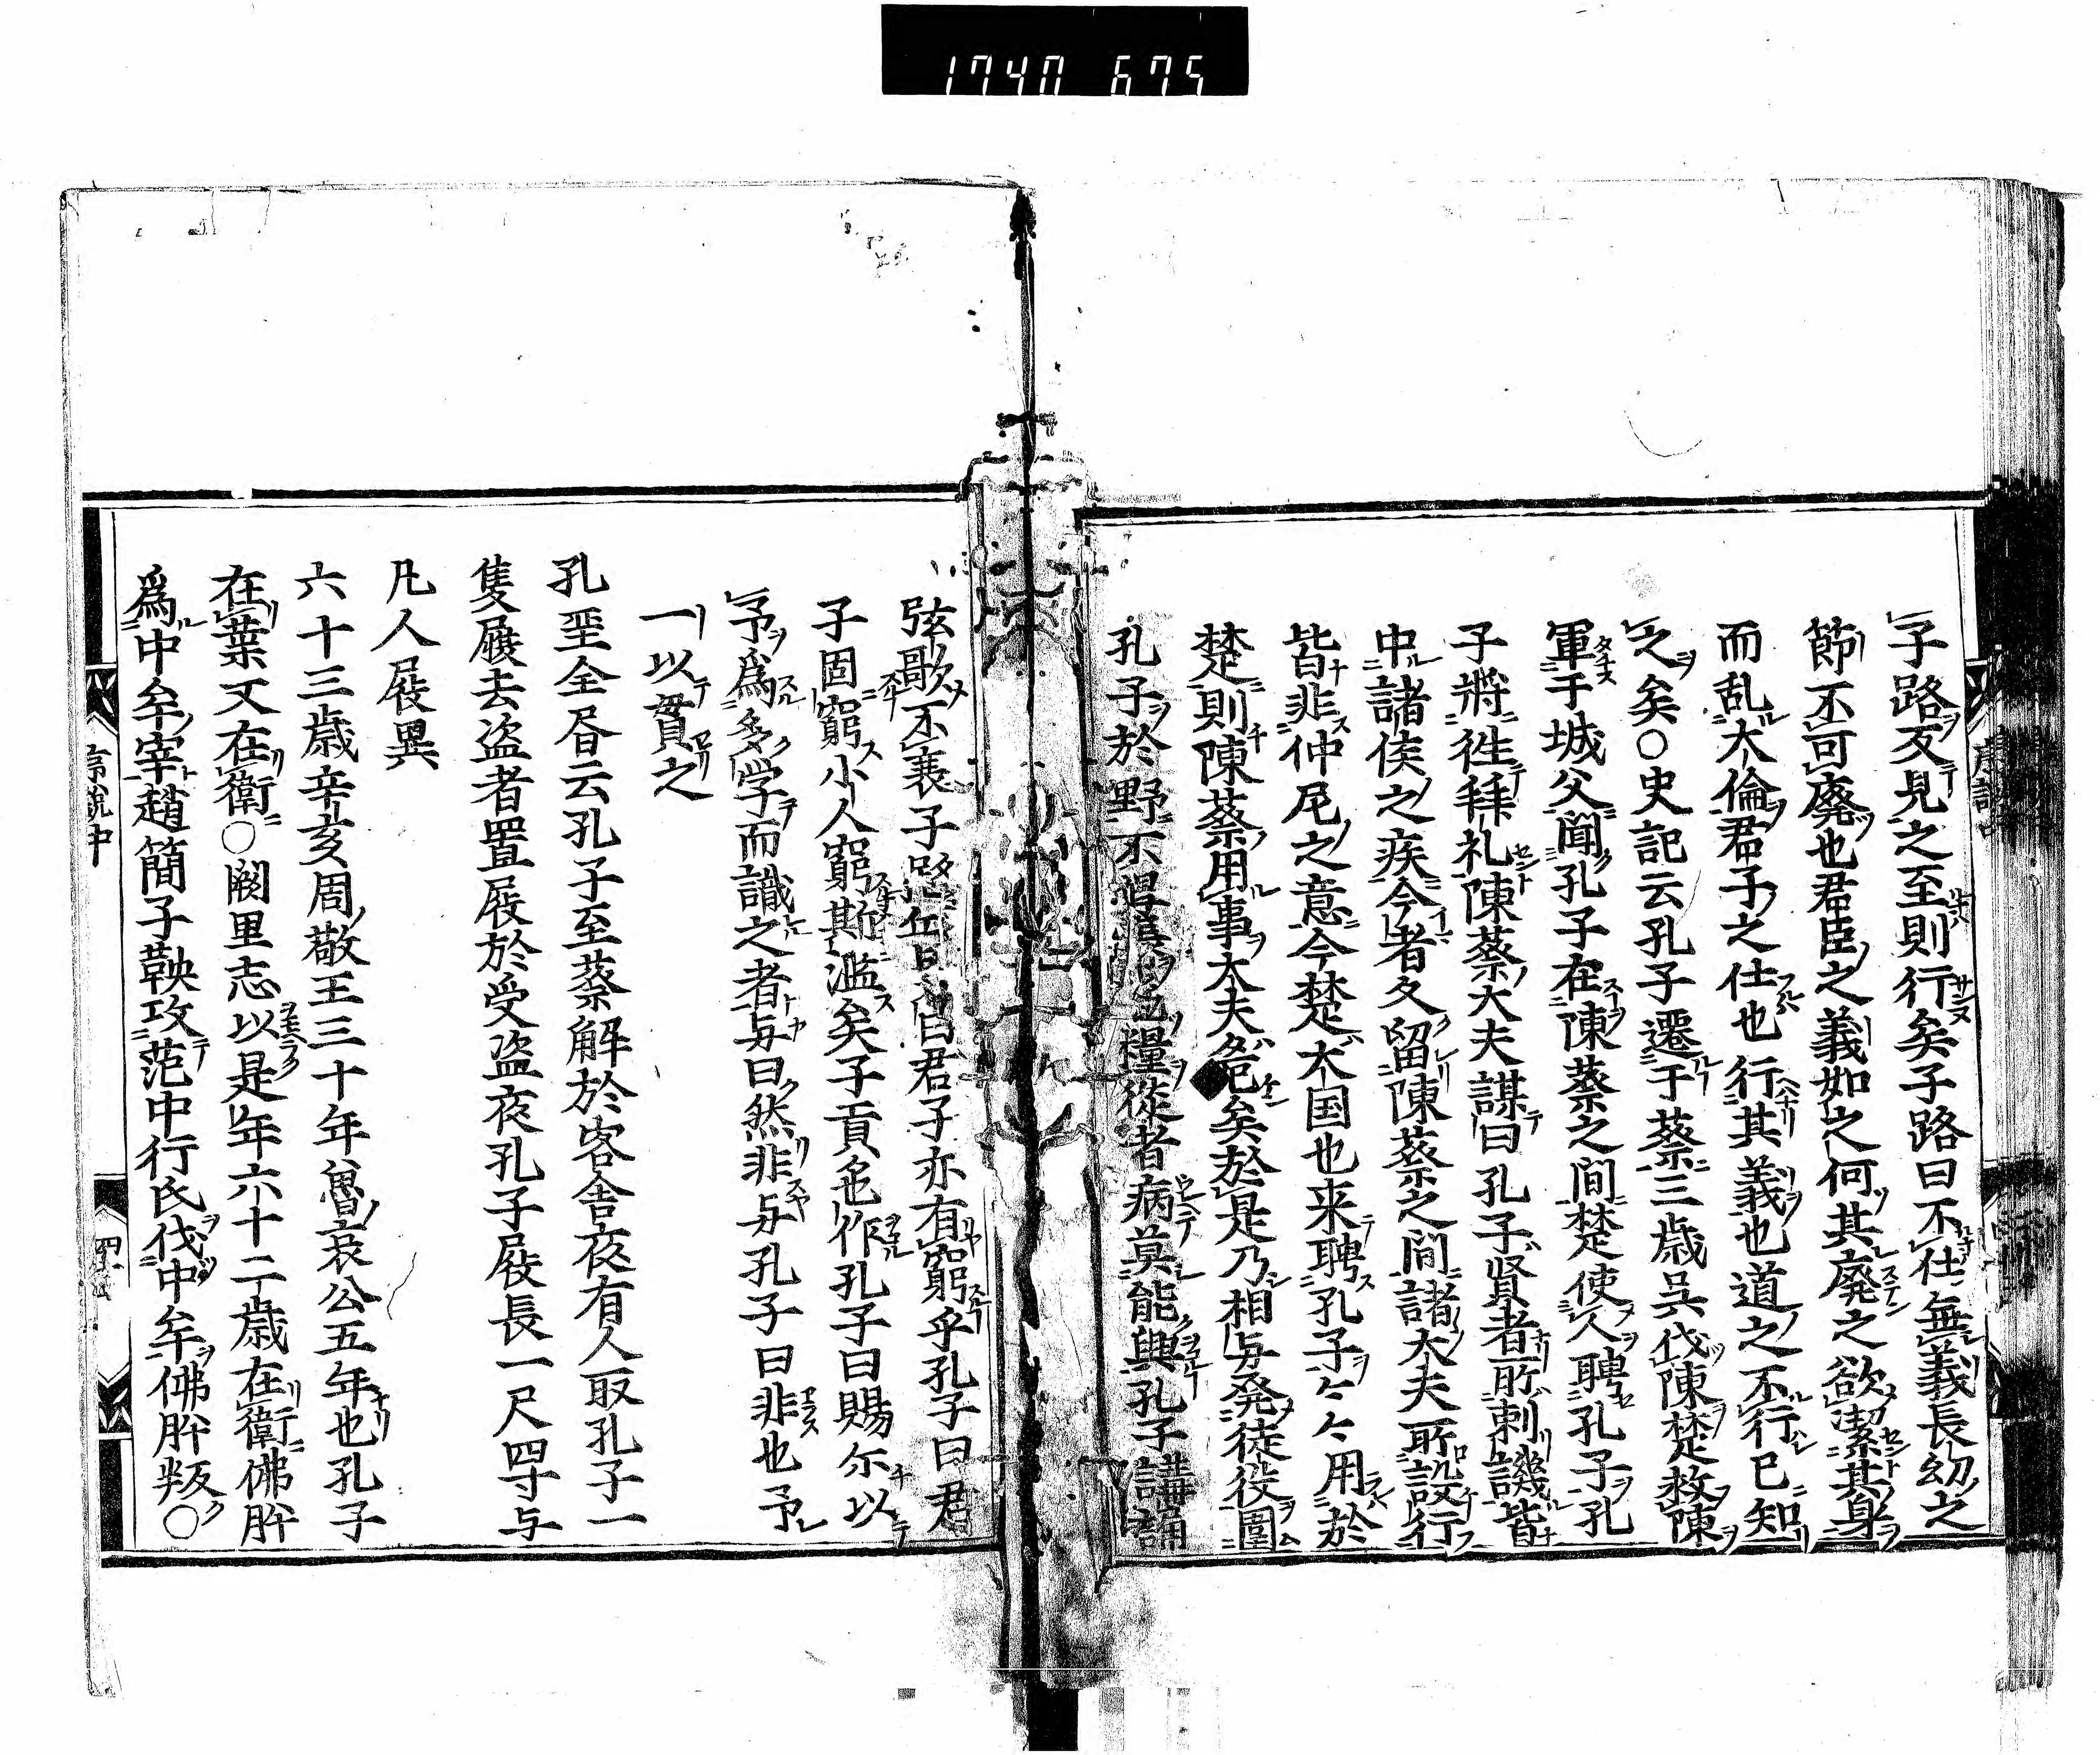 1740 675
子路反見之至則行矣子路曰不仕無義長幼之
節不可廢也君臣之義如之何其廢之欲潔其身
而乱大倫君子之仕也行其義也道之不行已知
之矣○史記云孔子遷于蔡三歳呉伐陳楚救陳
軍于城父聞孔子在陳蔡之間楚使人聘孔子孔
子將徃拜礼陳蔡大夫謀曰孔子賢者所刺譏皆
中諸侯之疾今者久留陳蔡之間諸大夫所設行
皆非仲尼之意今楚大国也来聘孔子々々用於
楚則陳蔡用事大夫危矣於是乃相与発徒役圍
孔子於野不糧從者病莫能興孔子講誦
弦歌不衰子路曰君子亦有窮乎孔子曰君
子固窮小人窮斯濫矣子貢色作孔子曰賜尓以
予為多学而識之者与曰然非与孔子曰非也予
一以貫之
孔坙全昬云孔子至蔡解於客舎夜有人取孔子一
隻屐去盗者置屐於受盗夜孔子屐長一尺四寸与
凡人屐異
六十三歳辛亥周敬王三十年魯哀公五年也孔子
在葉又在衛○闕里志以是年六十二歳在衛佛肸
爲中牟宰趙簡子鞅攻范中行氏伐中牟佛肸叛○